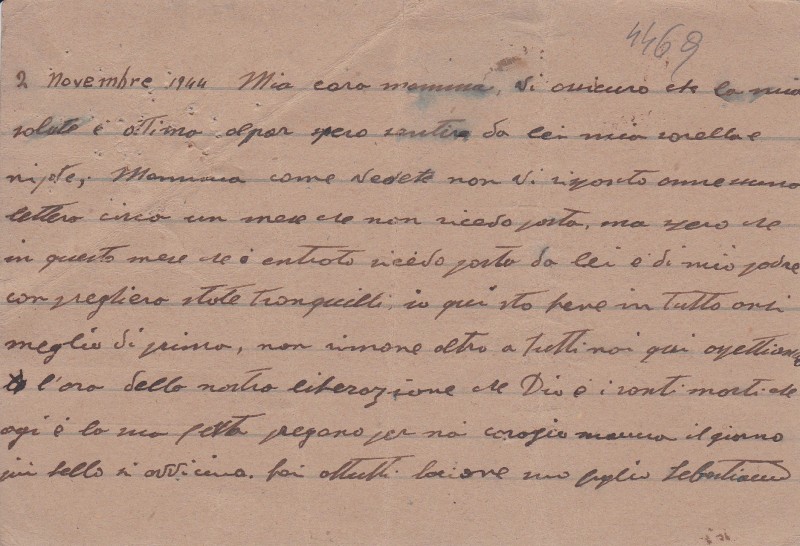 4469
2 Novembre 1944 Mia cara mamma, Vi assicuro che la mia
salute è ottima alpar spero sentire da lei mia sorella e
nipote, Mamma come vedete non vi risposto annessuna
lettera circa un mese che non ricevo posta, ma spero che
in questo mese che è entrato ricevo posta da lei e di mio padre
con preghiera state tranquilli, io qui sto bene in tutto anzi
meglio di prima, non rimane altro a tutti noi qui aspettiamo
l'ora della nostra liberazione che Dio e i santi morti che
ogi è la sua festa pregano per noi coragio mamma il giorno
più bello si avvicina. attutti suo figlio Sebastiano